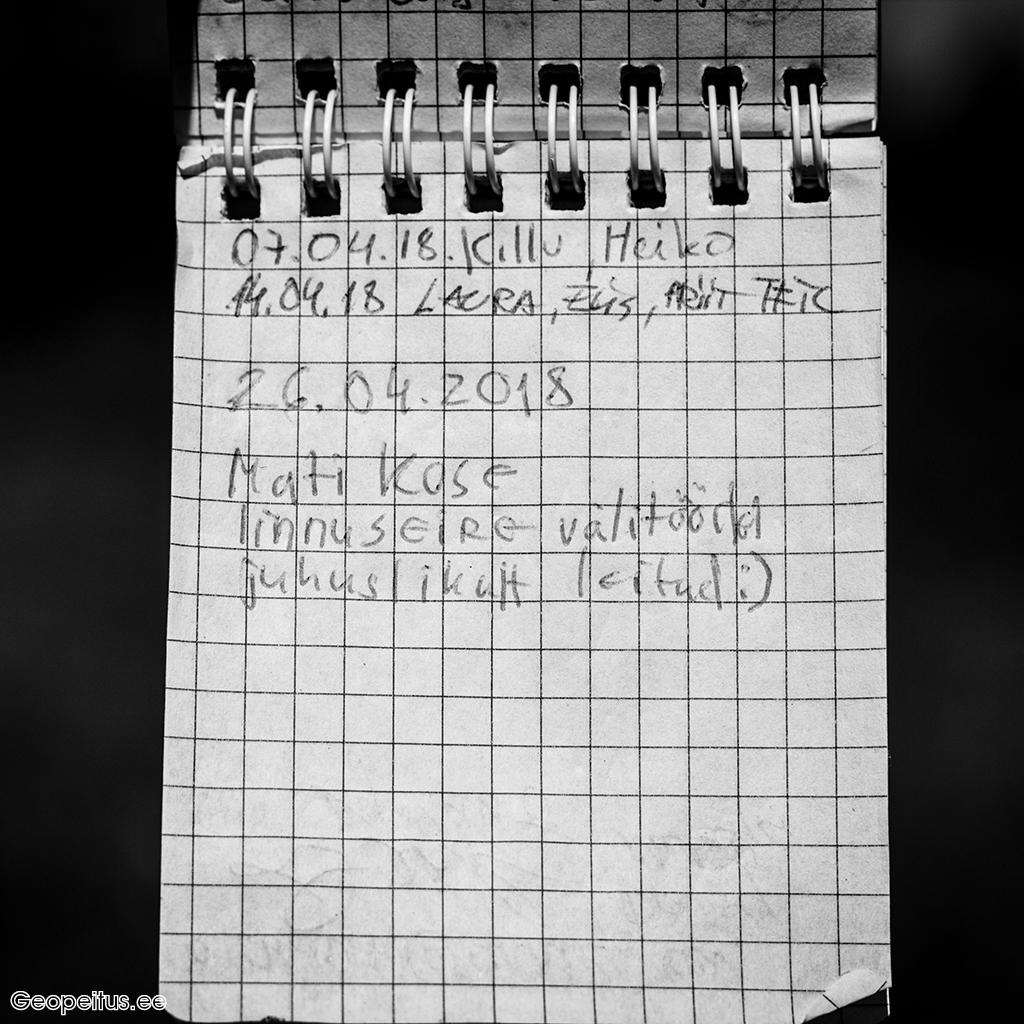 07.04.18. Killu, Heiko
14.04.18 LAURA, Eliis, PRIIT
26.04.2018
Mati Kose
linnuseire välitööd
juhuslikult leitud :)
Geopeitus.ee